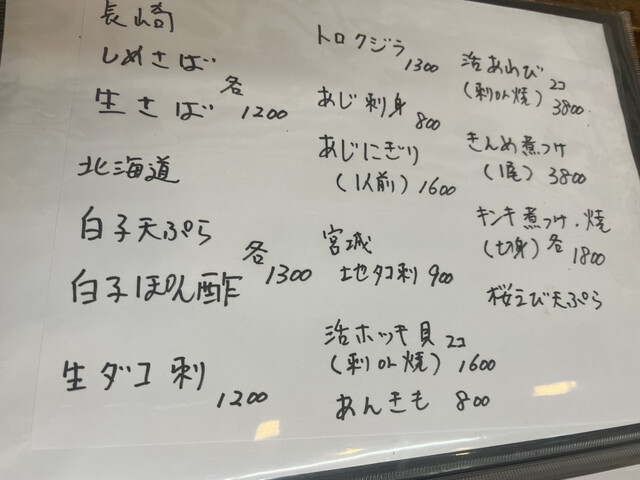 長崎
しめさば
生さば 各 1200
北海道
白子天ぷら
白子ぽん酢 各 1300
生ダコ刺 1200
トロクジラ 1300
あじ刺身 800
あじにぎり
(1人前) 1600
宮城
地タコ刺 900
活ホッキ貝 2コ
(刺or焼) 1600
あんきも 800
活あわび 2コ
(刺or焼) 3800
きんめ煮つけ
(1尾) 3800
キンキ煮つけ・焼
(切身) 各 1800
桜えび天ぷら